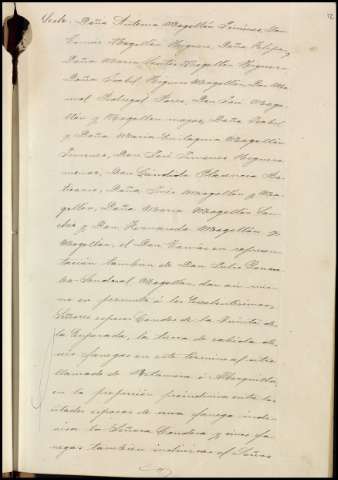 Sexto: Doña Antonia Magallón Jimenez, Don
Ramón Magallón Higuera, Doña Felisa y
Doña María Magallón Higuera
Doña Isabel Higuera Magallón, Don Ma
nuel Pedregal Perez, Don José Maga
llón y Magallón mayor, Doña Isabel
y Doña María Magallón
Jimenez, Don José Jimenez Higuera
menor, Don Cándido Plasencia
Doña Inés Magallón y Ma
gallón, Doña María Magallón San
chez y Don Fernando Magallón y
Magallón, el Don Ramón en represen
tación tambien de Don Julio
Sandoval Magallón, dan asi mis
mo en permuta á los Excelentísimos
Señores esposos Condes de la Quinta de
la Enjarada, la tierra de cabida de
seis fanegas en este termino al sitio
llamado de Matanza ó
en la proporción proindiviso entre los
citados esposos de una fanega indi
visa la Señora Condesa y cinco fa
negas tambien indivisas el Señor